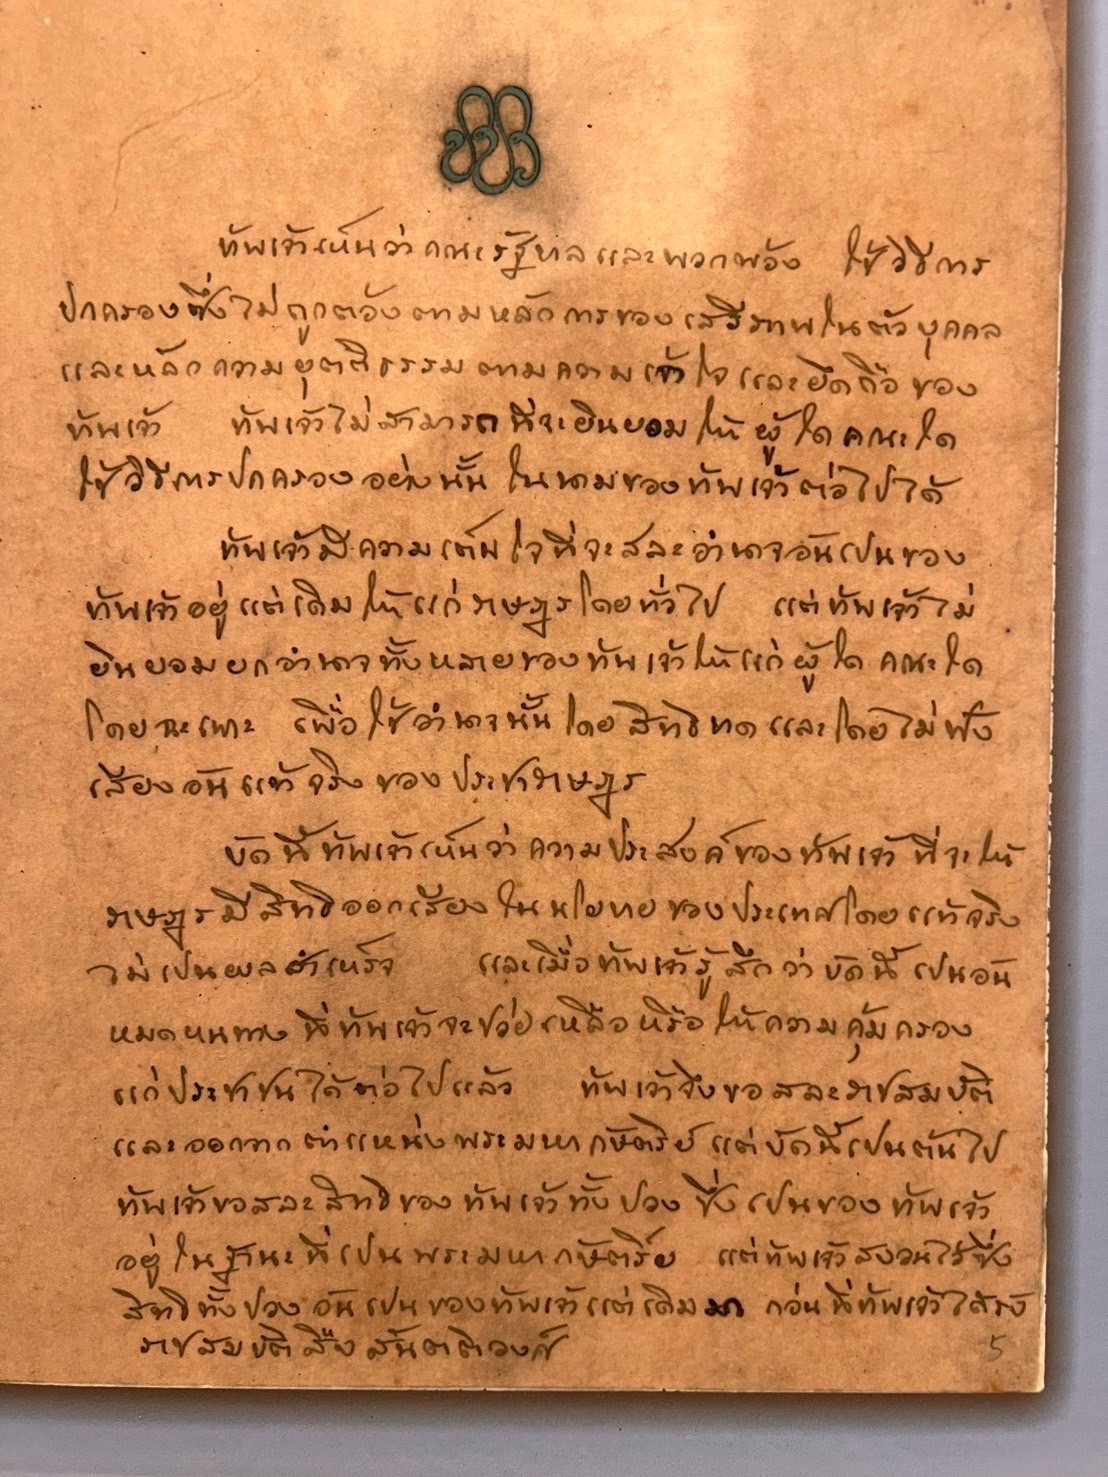 ปปร
ข้าพเจ้าเห็นว่าคณะรัฐบาลและพวกพ้อง ใช้วิธีการ
ปกครองซึ่งไม่ถูกต้องตามหลักการของเสรีภาพในตัวบุคคล
และหลักความยุตติธรรมตามความเข้าใจและยึดถือของ
ข้าพเจ้า ข้าพเจ้าไม่สามารถที่จะยินยอมให้ผู้ใดคณะใด
ใช้วิธีการปกครองอย่างนั้นในนามของข้าพเจ้าต่อไปได้
ข้าพเจ้ามีความเต็มใจที่จะสละอำนาจอันเปนของ
ข้าพเจ้าอยู่แต่เดิมให้แก่ราษฎรโดยทั่วไป แต่ข้าพเจ้าไม่
ยินยอมยกอำนาจทั้งหลายของข้าพเจ้าให้แก่ผู้ใดคณะใด
โดยฉะเพาะ เพื่อใช้อำนาจนั้นโดยสิทธิขาดและโดยไม่ฟัง
เสียงอันแท้จริงของประชาราษฎร
บัดนี้ข้าพเจ้าเห็นว่าความประสงค์ของข้าพเจ้าที่จะให้
ราษฎรมีสิทธิออกเสียงในนโยบายของประเทศโดยแท้จริง
ไม่เปนผลสำเหร็จ และเมื่อข้าพเจ้ารู้สึกว่าบัดนี้เปนอัน
หมดหนทางที่ข้าพเจ้าจะช่วยเหลือหรือให้ความคุ้มครอง
แก่ประชาชนได้ต่อไปแล้ว ข้าพเจ้าจึงขอสละราชสมบัติ
และออกจากตำแหน่งพระมหากษัตริย์แต่บัดนี้เปนต้นไป
ข้าพเจ้าขอสละสิทธิของข้าพเจ้าทั้งปวงซึ่งเปนของข้าพเจ้า
อยู่ในฐานะที่เปนพระมหากษัตริย์ แต่ข้าพเจ้าสงวนไว้ซึ่ง
สิทธิทั้งปวงอันเปนของข้าพเจ้าแต่เดิมมา ก่อนที่ข้าพเจ้าได้รับ
ราชสมบัติสืบสันตติวงศ์
5